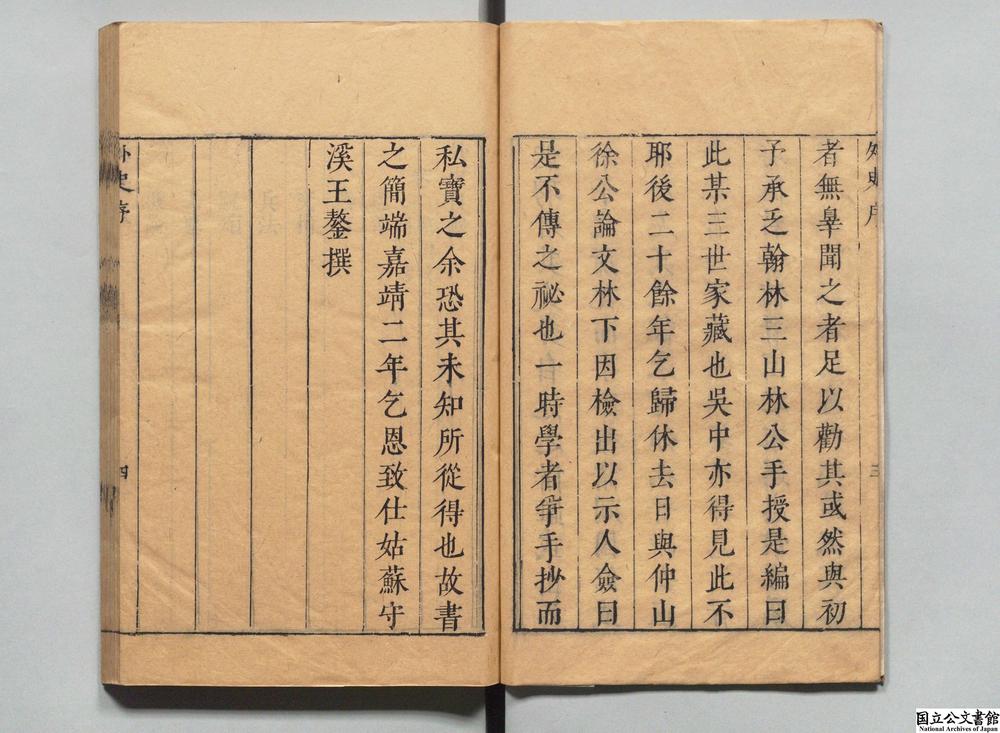 者無辠聞之者足以勸其或然與初
予承乏翰林三山林公手授是編曰
此某三世家藏也吳中亦得見此不
耶後二十餘年乞歸休去日與仲山
徐公論文林下因檢出以示人僉曰
是不傳之祕也一時學者爭手抄而
私寶之余恐其未知所從得也故書
之簡端嘉靖二年乞恩致仕姑蘇守
溪王鏊撰
史序
四
国立公文書館
National Archives of Japan